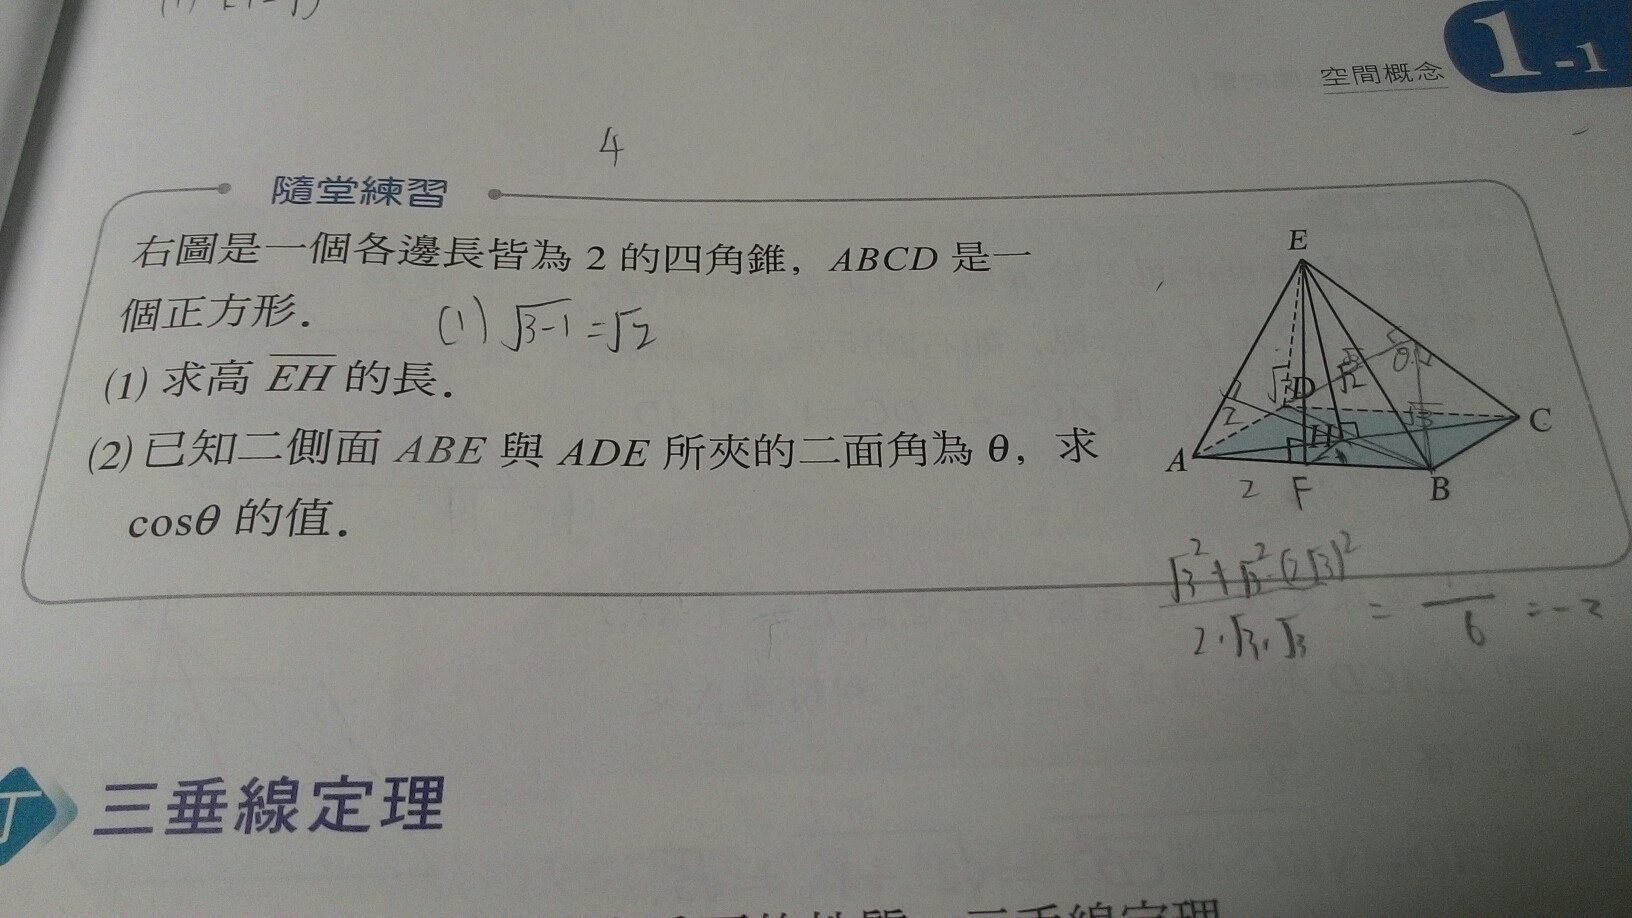 1-1
空間概念
4
隨堂練習
右圖是一個各邊長皆為 2 的四角錐，ABCD 是一
個正方形．
(1) √3-1 = √2
(1) 求高 EH 的長．
(2) 已知二側面 ABE 與 ADE 所夾的二面角為 θ，求
cosθ 的值．
E
D
H
C
A
B
2
2 F
√3² + √3² - (2√3)²
2·√3·√3
= 6 = -2
丁 三垂線定理